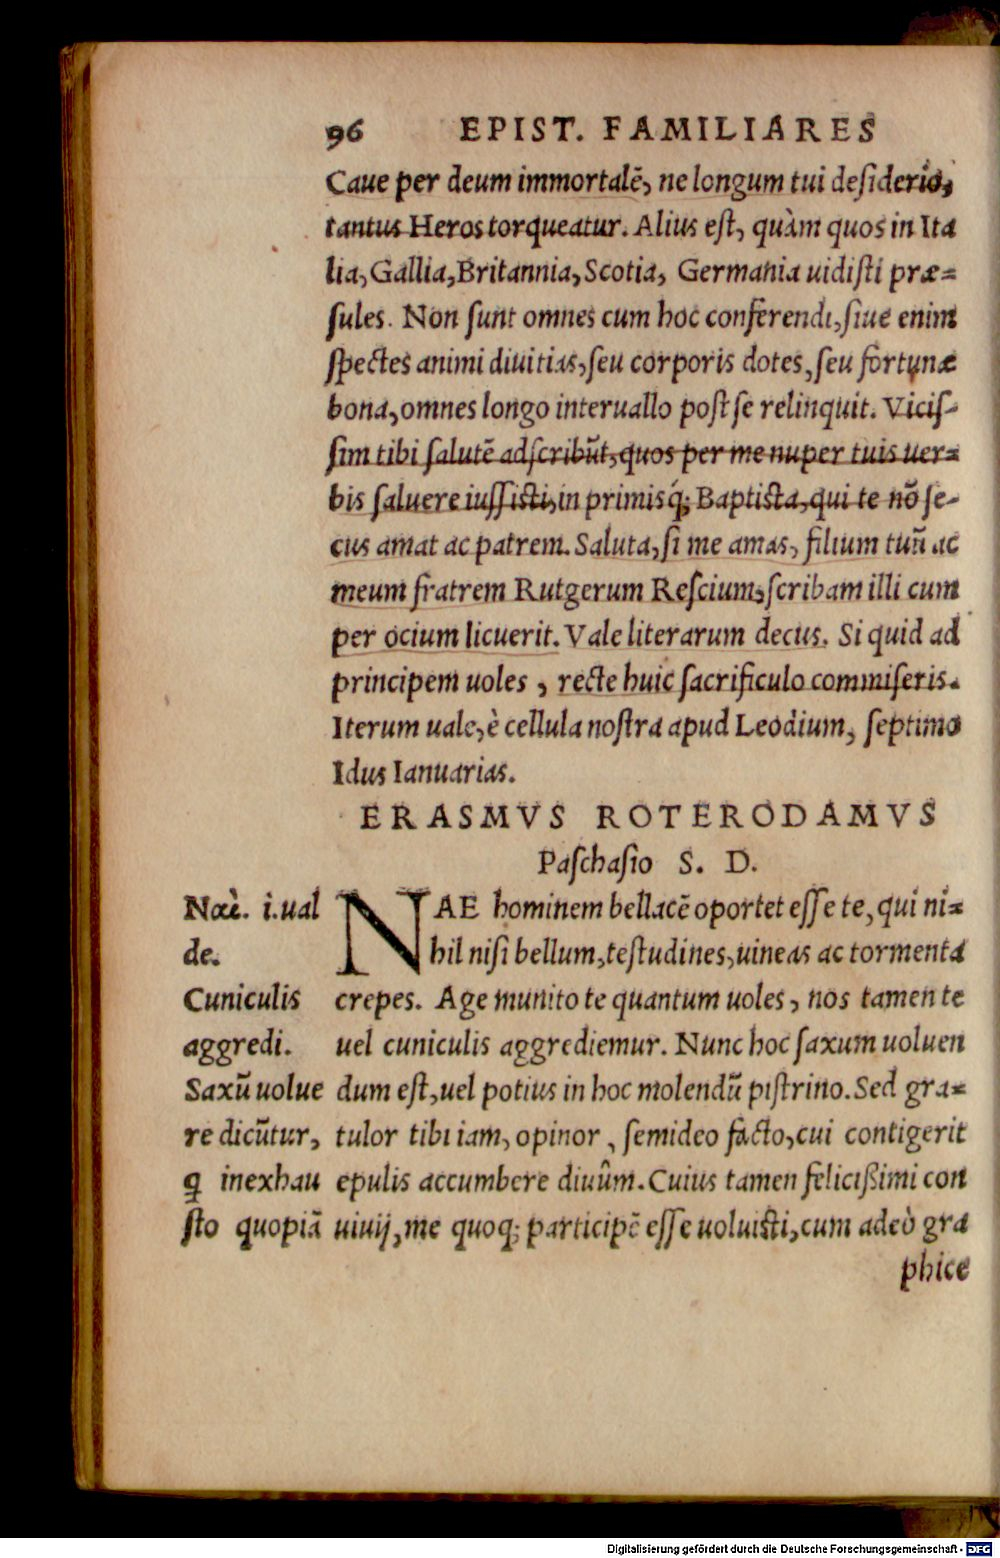 96 EPIST. FAMILIARES
Caue per deum immortalē, ne longum tui desiderio,
tantus Heros torqueatur. Alius est, quàm quos in Ita
lia, Gallia, Britannia, Scotia, Germania uidisti præ-
sules. Non sunt omnes cum hoc conferendi, siue enim
spectes animi diuitias, seu corporis dotes, seu fortunæ
bona, omnes longo interuallo post se relinquit. Vicis-
sim tibi salutē adscribūt, quos per me nuper tuis uer-
bis saluere iussisti, in primisq́; Baptista, qui te nō se-
cus amat ac patrem. Saluta, si me amas, filium tuū ac
meum fratrem Rutgerum Rescium, scribam illi cum
per ocium licuerit. Vale literarum decus. Si quid ad
principem uoles, recte huic sacrificulo commiseris.
Iterum uale, è cellula nostra apud Leodium, septimo
Idus Ianuarias.
ERASMVS ROTERODAMVS
Paschasio S. D.
NAE hominem bellacē oportet esse te, qui ni-
hil nisi bellum, testudines, uineas ac tormenta
crepes. Age munito te quantum uoles, nos tamen te
uel cuniculis aggrediemur. Nunc hoc saxum uoluen
dum est, uel potius in hoc molendū pistrino. Sed gra-
tulor tibi iam, opinor, semideo facto, cui contigerit
epulis accumbere diuûm. Cuius tamen felicißimi con
uiuij, me quoq; participē esse uoluisti, cum adeò gra
phice
i. ual
de.
Cuniculis
aggredi.
Saxū uolue
re dicūtur,
q inexhau
sto quopiā
Digitalisierung gefördert durch die Deutsche Forschungsgemeinschaft - DFG